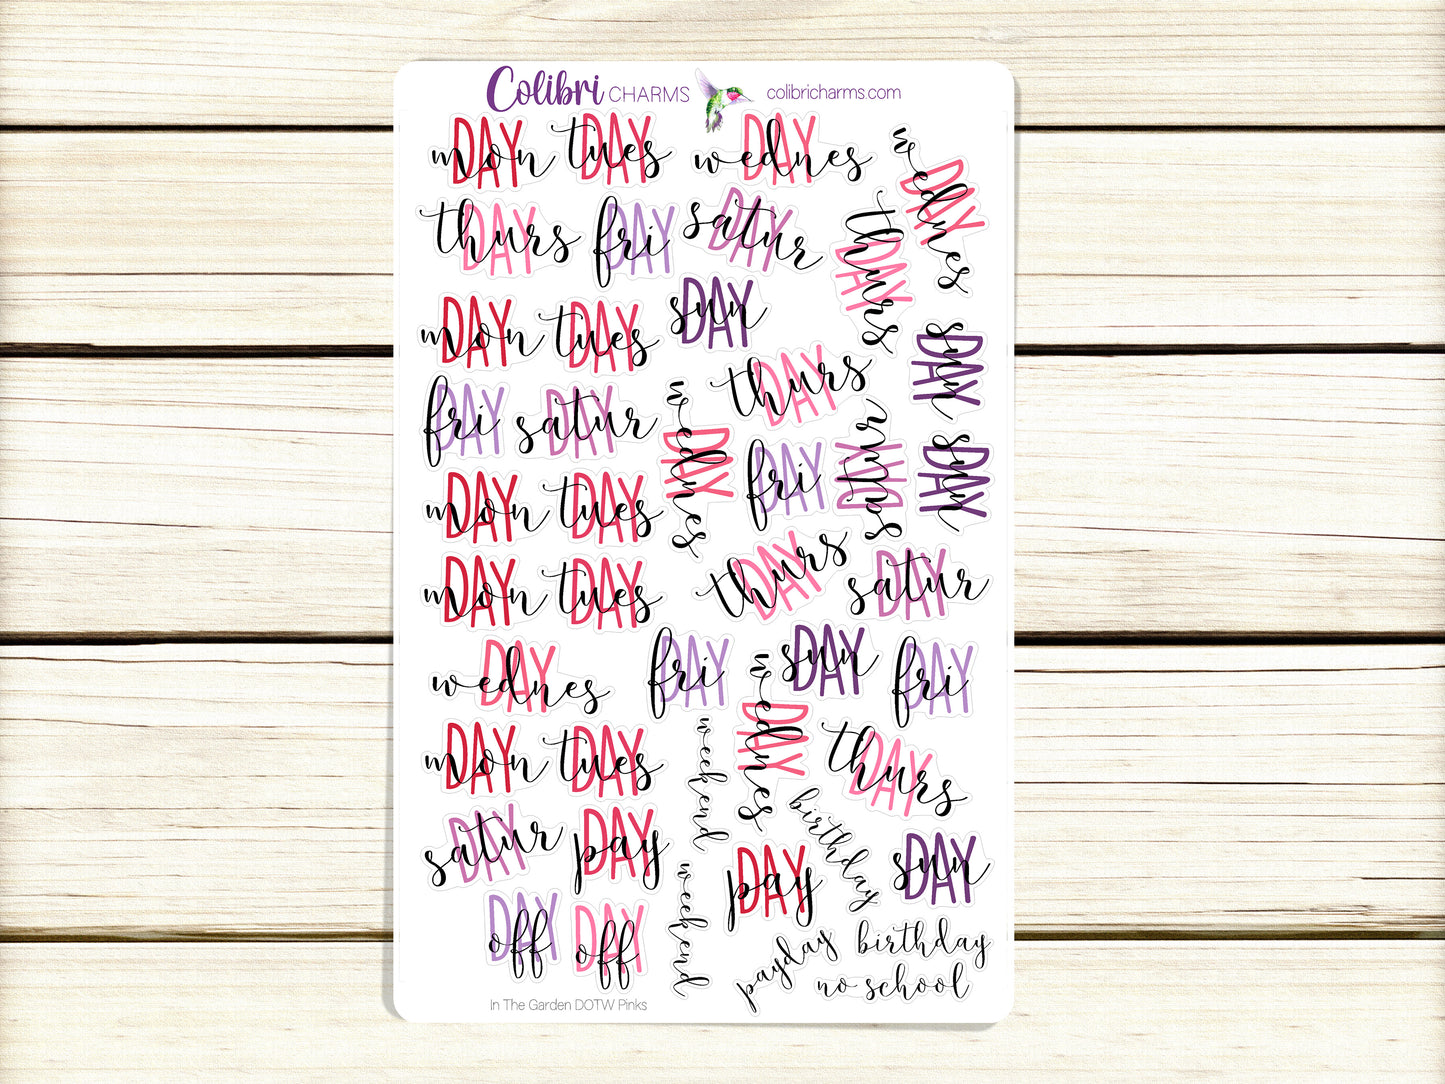 Colibri CHARMS colibricharms.com
monDAY tuesDAY wednesDAY wednesDAY
thursDAY friDAY saturDAY thursDAY
monDAY tuesDAY sunDAY sunDAY
friDAY saturDAY wednesDAY thursDAY
friDAY saturDAY sunDAY
monDAY tuesDAY
monDAY tuesDAY thursDAY saturDAY
wednesDAY friDAY sunDAY friDAY
monDAY tuesDAY weekend wednesDAY thursDAY
saturDAY payDAY payDAY birthday sunDAY
offDAY offDAY weekend payday birthday
no school
In The Garden DOTW Pinks